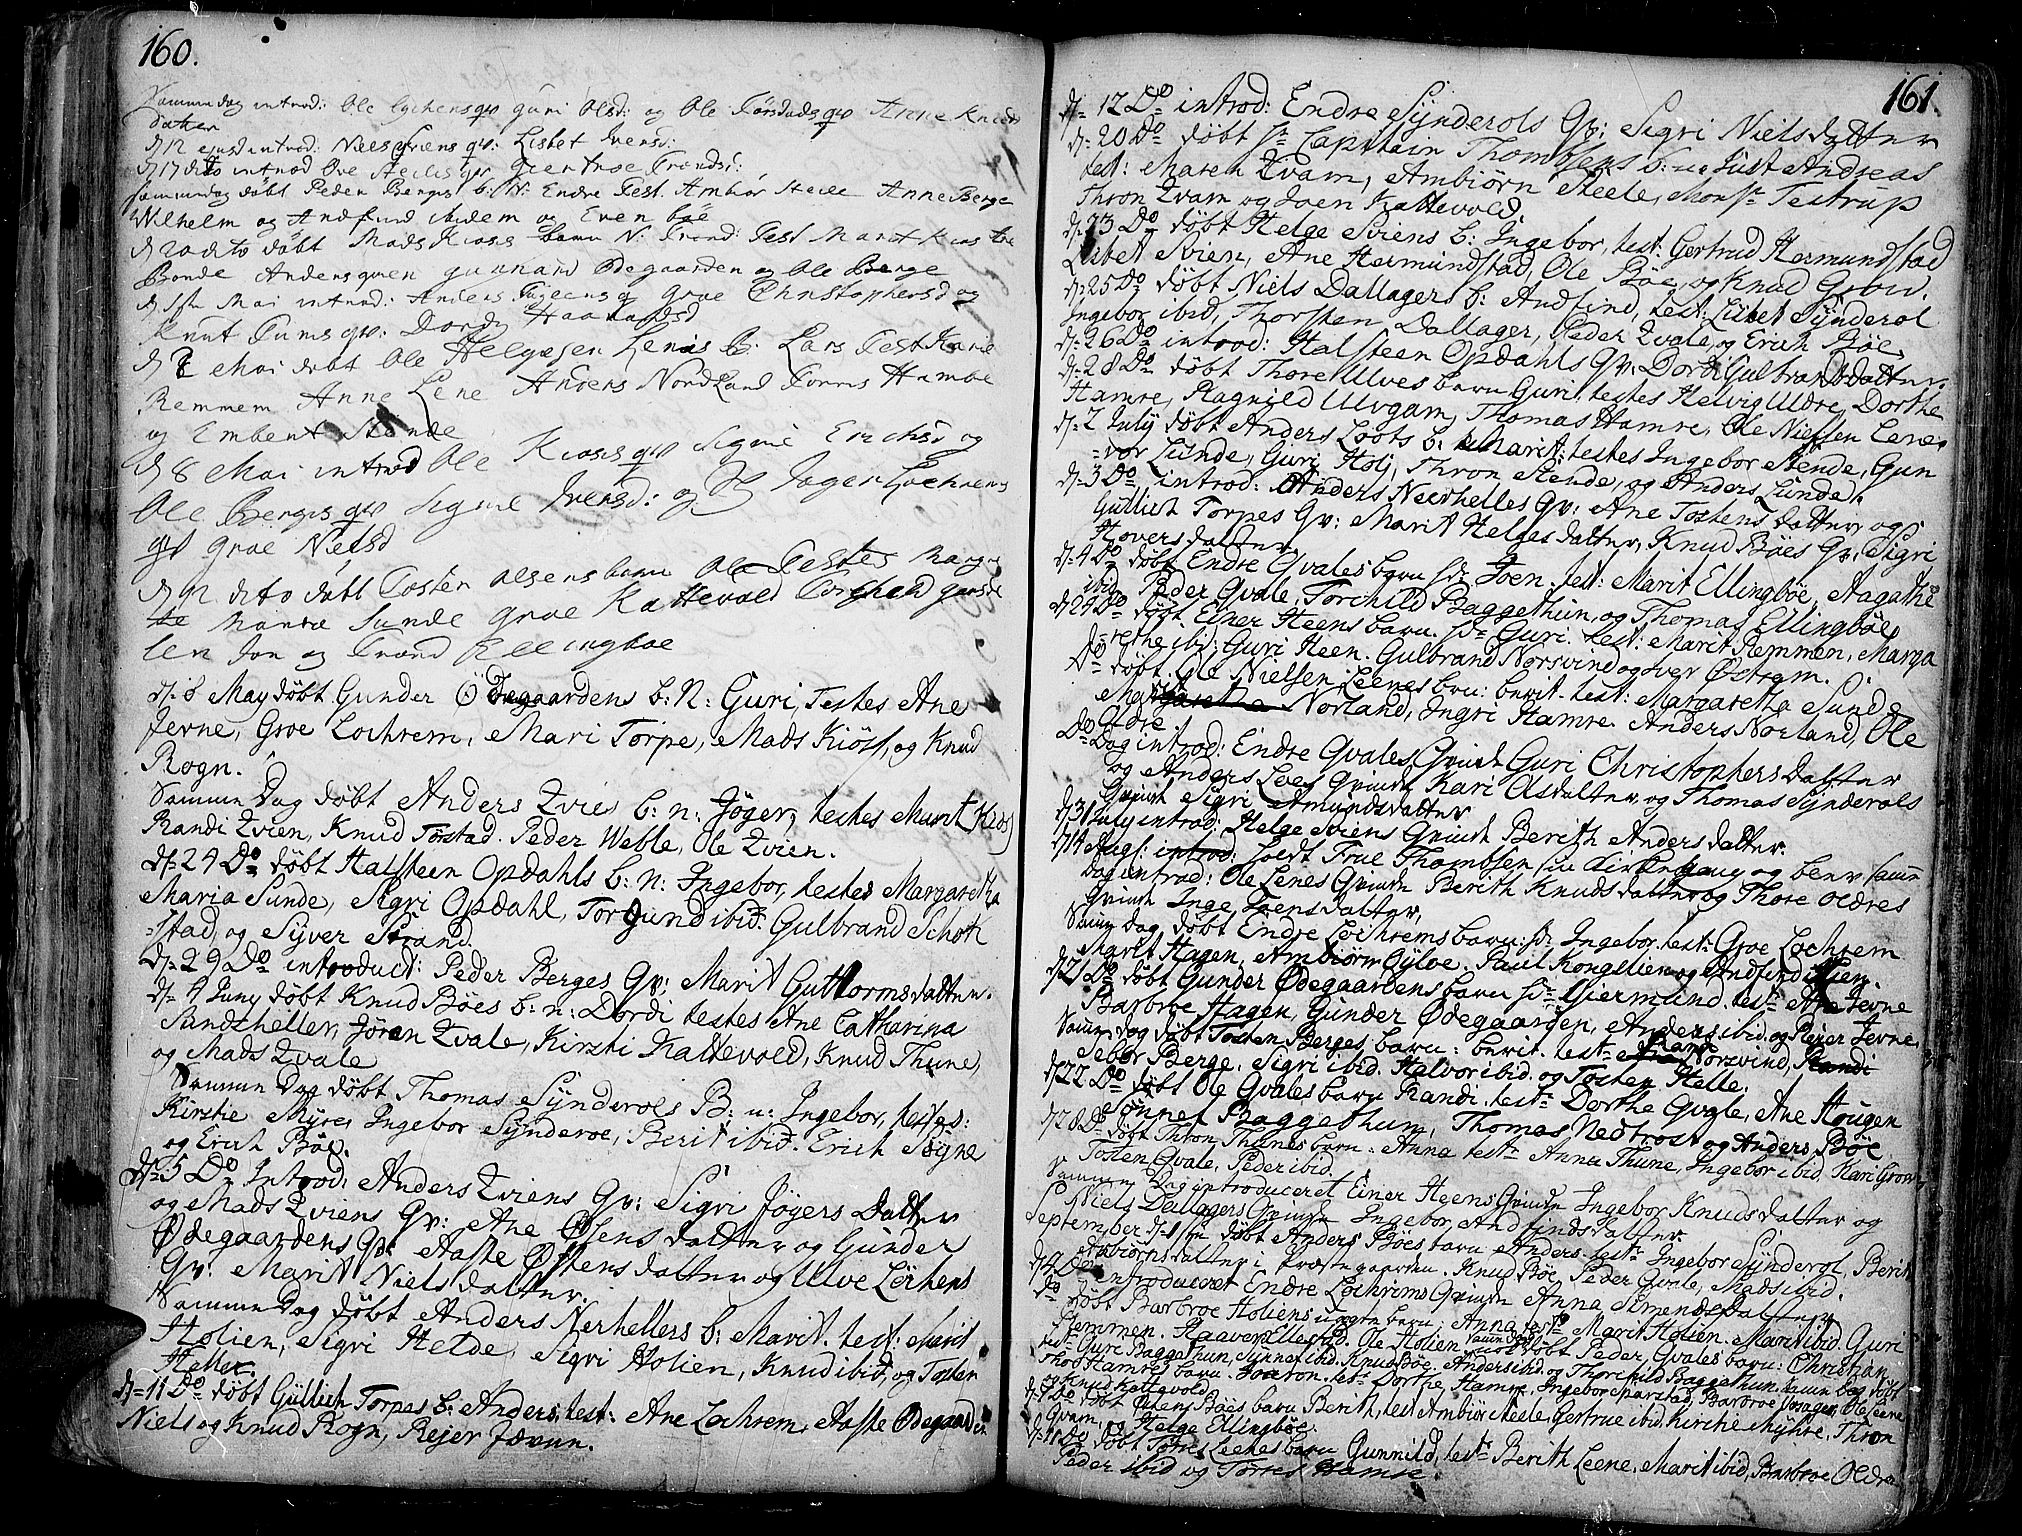 160.
Samme dag introd: Ole Lychens qv Guri Olsd: og Ole Tørstads qv Anne Knuds
datter
d 12 ejusd introd: Niels Sviens qv: Lisbet Iversd:
d 17 dito introd Ove Heilis qv Giertroe Trondsd:
samme dag døbt Peder Berges b: N: Endre Test Ambiør Steile Anne Berge
Wilhelm og Andfind ibidem og Even bøe
d 20 dito døbt Mads Kiøs barn N: Trond: Test Marit Kiøs
Bonde Anders quen Gunnand Ødegaarden og Ole Berge
d 1ste Mai introd: Anders qv Groe Christophersd og
Knut Tuns qv: Dordy Haavardsd
d Mai døbt Ole Helgesen Lenes b: Lars Test Karie
Remmem Anne Lene Anders Nordland Torres Hambe
og Embret Stende
d 8 Mai introd Ole Kiøs qv Signe Erichsd og
Ole Berges qv Signe Iversd: og Jøger Lochrens
qv Groe Nielsd
d 12 dito døbt Tosten Olsens barn Ole Testes Marg
Maria Sunde Groe Kattevold Torchend
len Jon og Trond Ellingboe
d: 8 May døbt Gunder Ødegaardens b: N: Guri, Testes Ane
Jerne, Groe Lochrem, Mari Torpe, Mads Kiøs, og Knud
Rogn.
Samme Dag døbt Anders Zvies b: n: Jøger, testes Marit (Kiøs)
Randi Zvien, Knud Tørstad. Peder Weble, Ole Zvien.
d= 24 Do døbt Halsteen Opdahls b: n: Ingebor, testes Margaretha
Maria Sunde, Sigri Opdahl, Torgund ibid: Gulbrand Schøth
=stad, og Syver Strand.
d= 29 Do introduct: Peder Berges Qv: Marit Guttormsdatter.
d= 4 Juny døbt Knud Bøes b: n: Dordi testes Ane Catharina
Sandzheller, Jøren Zvale, Kirsti Kattevold, Knud Thune,
og Mads Zvale
Samme Dag døbt Thomas Synderols B: n: Ingebor, testes:
Kirstie Myre, Ingebor Synderoe, Berit ibid: Erich Søgne
og Erich Bøe.
d= 5 Do Introd: Anders Zviens Qv: Sigri Jøgers Datter
og Mads Zviens Qv: Ane Olsens datter og Gunder
Ødegaardens Qv: Aaste Østensdatter og Ulve Lochens
Qv: Marit Nielsdatter.
Samme Dag døbt Anders Nerhellers b: Marit. test: Marit
Holien, Sigri Helde, Sigri Holien, Knud ibid, og Tosten
Helle.
d= 11 Do døbt Gullich Torpes b: Anders, test: Ane Lochrem, Aaste Ødegaarden
Niels og Knud Rogn, Rejer Jævnn.
161.
d= 12 Do introd: Endre Synderols Qv: Sigri Nielsdatter
d: 20 Do døbt Sr Capitain Thombsens b: Just Andreas
test: Maren Zvam, Ambiørn Steele, Monsr Testrup
Thron Zvam og Joen Kattevold.
d: 23 Do døbt Helge Sviens b: Ingebor, test: Gertrud Hermundstad
Lisbet Svien, Ane Hermundstad, Ole Bøe og Knud Grov.
d: 25 Do døbt Niels Dallagers b: Andfind, test: Lisbet Synderol
Ingebor ibid, Thorsten Dallager, Peder Zvale, og Erich Bøe.
d= 26 Do introd: Halsteen Opdahls Qv: Dordi Gulbrandsdatter.
d= 28 Do døbt Thore Ulves barn Guri, testes Helvig Uldre, Dorthe
Hamre, Ragnild Ulvgam, Thomas Hamre, Ole Nielsen Lene.
d= 2 July døbt Anders Loots b: Marit: testes Ingebor Stende, Gun
=vor Lunde, Guri Holj, Thron Stende, og Anders Lunde.
d= 3 Do introd: Anders Neerhelles Qv: Ane Tostensdatter og
Gullich Torpes Qv: Marit Helgesdatter, Knud Bøes Qv: Sigri
Hoversdatter
d: 4 Do døbt Endre Qvales barn sd: Joen. test: Marit Ellingbøe, Aagathe
ibid, Peder Qvale, Torchild Baggethun, og Thomas Ellingbøe.
d 24 Do døbt Einer Heens barn. sd= Guri. test: Marit Remmen, Marga
=rethe ibid: Guri Heen. Gulbrand Norsvind og Iver Østrem.
Do døbt, Ole Nielsen Leenes brn: berit. test: Margaretha Sunde
Marit Norland, Ingri Hamre. Anders Norland, Ole
Oldre.
Do Dag introd: Endre Qvales Qvinde Guri Christophersdatter
og Anders Loes Qvinde Kari Olsdatter, og Thomas Synderols
Qvinde Sigri Amundsdatter
d 31 July introd: Helge Sviens Qvinde Berith Andersdatter.
d 14 Aug: holdt Frue Thombsen sin Kirkegang og benr samme
Dag introd: Ole Lenes Qvinde Berith Knudsdatter og Thore Oldres
Qvinde Inge Joensdatter.
Samme Dag døbt Endre Lochrems barn: sd: Ingebor. test: Groe Lochrem
Marit Hagen, Ambiørn Qylve. Paul Kongelien og Andfind Lien.
d 21 Do døbt Gunder Ødegaardens barn sd= Giermund. test= Ane Jevne
Barbroe Hagen, Gunder Ødegaarden, Anders ibid. og Reier Jevne.
Samme Dag døbt Tosten Berges barn: berit. test= Randi Norsvind,
Sebor Berge. Sigri ibid. Halvor ibid. og Tosten Helle.
d 22 Do døbt Ole Qvales barn Randi. test= Dorthe Qvale, Ane Hougen
Sønnef Baggethun, Thomas Nedtrost og Anders Bøe
d 28 Do døbt Thron Thunes barn: Anna test= Anna Thune, Ingebor ibid, Kari Grov
Tosten Qvale, Peder ibid.
Samme Dag introduceret Einer Heens Qvinde Ingebor Knudsdatter og
Niels Dallagers Qvinde Ingebor Andfindsdatter.
September d. 1ste døbt Anders Bøes barn Anders. test= Ingebor Synderol, Berit
Esbiørnsdatter i Præstegaarden. Knud Bøe Peder Qvale, Mads ibid.
d 4 Do introduceret Endre Lochrems Qvinde Anna Simensdatter
Do døbt Barbroe Holiens uægte barn: Anna test= Marit Holien. Marit ibid Guri
Remmen. Haaver Ellestad. Ole Holien Samme Dag døbt Peder Qvales barn: Christian
test= Guri Baggethun, Synnef ibid. Knud Bøe, Anders ibid. og Thorchild Baggethun. Samme Dag døbt
Thos Hamres barn. Joaron. test: Dorthe Hamre, Ingebor Ole Leene
og Knud Kattevold.
d 9 Do døbt Ostens Bøes barn Berith, test Ambiør Steele, Gertrue ibid, Kirstie Myhre, Thron
Qvam, og Helge Ellingbøe.
d: 11 Do døbt Torres Leenes barn Gunnild, test= Berith Leene, Marit ibid, Barbroe Oldre
Peder ibid og Torres Hamre.